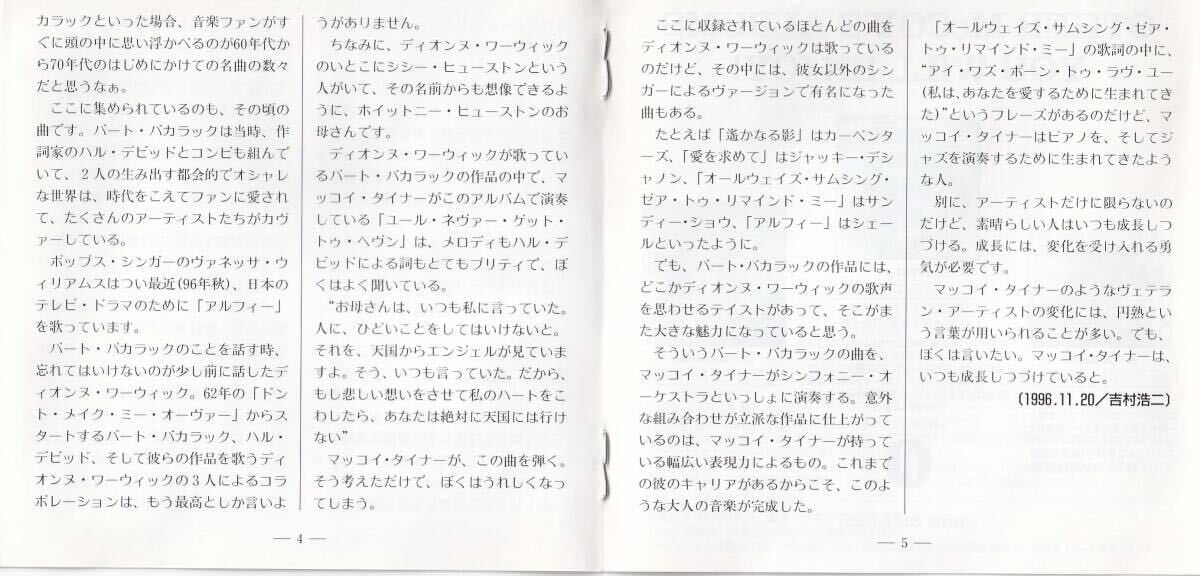 カラックといった場合、音楽ファンがす
ぐに頭の中に思い浮かべるのが60年代か
ら70年代のはじめにかけての名曲の数々
だと思うなぁ。
ここに集められているのも、その頃の
曲です。バート・バカラックは当時、作
詞家のハル・デビッドとコンビも組んで
いて、2人の生み出す都会的でオシャレ
な世界は、時代をこえてファンに愛され
て、たくさんのアーティストたちがカヴ
ァーしている。
ポップス・シンガーのヴァネッサ・ウ
ィリアムスはつい最近(96年秋)、日本の
テレビ・ドラマのために「アルフィー」
を歌っています。
バート・バカラックのことを話す時、
忘れてはいけないのが少し前に話したデ
ィオンヌ・ワーウィック。62年の「ドン
ト・メイク・ミー・オーヴァー」からス
タートするバート・バカラック、ハル・
デビッド、そして彼らの作品を歌うディ
オンヌ・ワーウィックの3人によるコラ
ボレーションは、もう最高としか言いよ
うがありません。
ちなみに、ディオンヌ・ワーウィック
のいとこにシシー・ヒューストンという
人がいて、その名前からも想像できるよ
うに、ホイットニー・ヒューストンのお
母さんです。
ディオンヌ・ワーウィックが歌ってい
るバート・バカラックの作品の中で、マ
ッコイ・タイナーがこのアルバムで演奏
している「ユール・ネヴァー・ゲット・
トゥ・ヘヴン」は、メロディもハル・デ
ビッドによる詞もとてもプリティで、ぼ
くはよく聞いている。
“お母さんは、いつも私に言っていた。
人に、ひどいことをしてはいけないと。
それを、天国からエンジェルが見ていま
すよ。そう、いつも言っていた。だから、
もし悲しい想いをさせて私のハートをこ
わしたら、あなたは絶対に天国には行け
ない”
マッコイ・タイナーが、この曲を弾く。
そう考えただけで、ぼくはうれしくなっ
てしまう。
— 4 —
ここに収録されているほとんどの曲を
ディオンヌ・ワーウィックは歌っている
のだけど、その中には、彼女以外のシン
ガーによるヴァージョンで有名になった
曲もある。
たとえば「遙かなる影」はカーペンタ
ーズ、「愛を求めて」はジャッキー・デシ
ャノン、「オールウェイズ・サムシング・
ゼア・トゥ・リマインド・ミー」はサン
ディー・ショウ、「アルフィー」はシェー
ルといったように。
でも、バート・バカラックの作品には、
どこかディオンヌ・ワーウィックの歌声
を思わせるテイストがあって、そこがま
た大きな魅力になっていると思う。
そういうバート・バカラックの曲を、
マッコイ・タイナーがシンフォニー・オ
ーケストラといっしょに演奏する。意外
な組み合わせが立派な作品に仕上がって
いるのは、マッコイ・タイナーが持って
いる幅広い表現力によるもの。これまで
の彼のキャリアがあるからこそ、このよ
うな大人の音楽が完成した。
「オールウェイズ・サムシング・ゼア・
トゥ・リマインド・ミー」の歌詞の中に、
“アイ・ワズ・ボーン・トゥ・ラヴ・ユー
(私は、あなたを愛するために生まれてき
た)”というフレーズがあるのだけど、マ
ッコイ・タイナーはピアノを、そしてジ
ャズを演奏するために生まれてきたよう
な人。
別に、アーティストだけに限らないの
だけど、素晴らしい人はいつも成長しつ
づける。成長には、変化を受け入れる勇
気が必要です。
マッコイ・タイナーのようなヴェテラ
ン・アーティストの変化には、円熟とい
う言葉が用いられることが多い。でも、
ぼくは言いたい。マッコイ・タイナーは、
いつも成長しつづけていると。
(1996.11.20／吉村浩二)
— 5 —